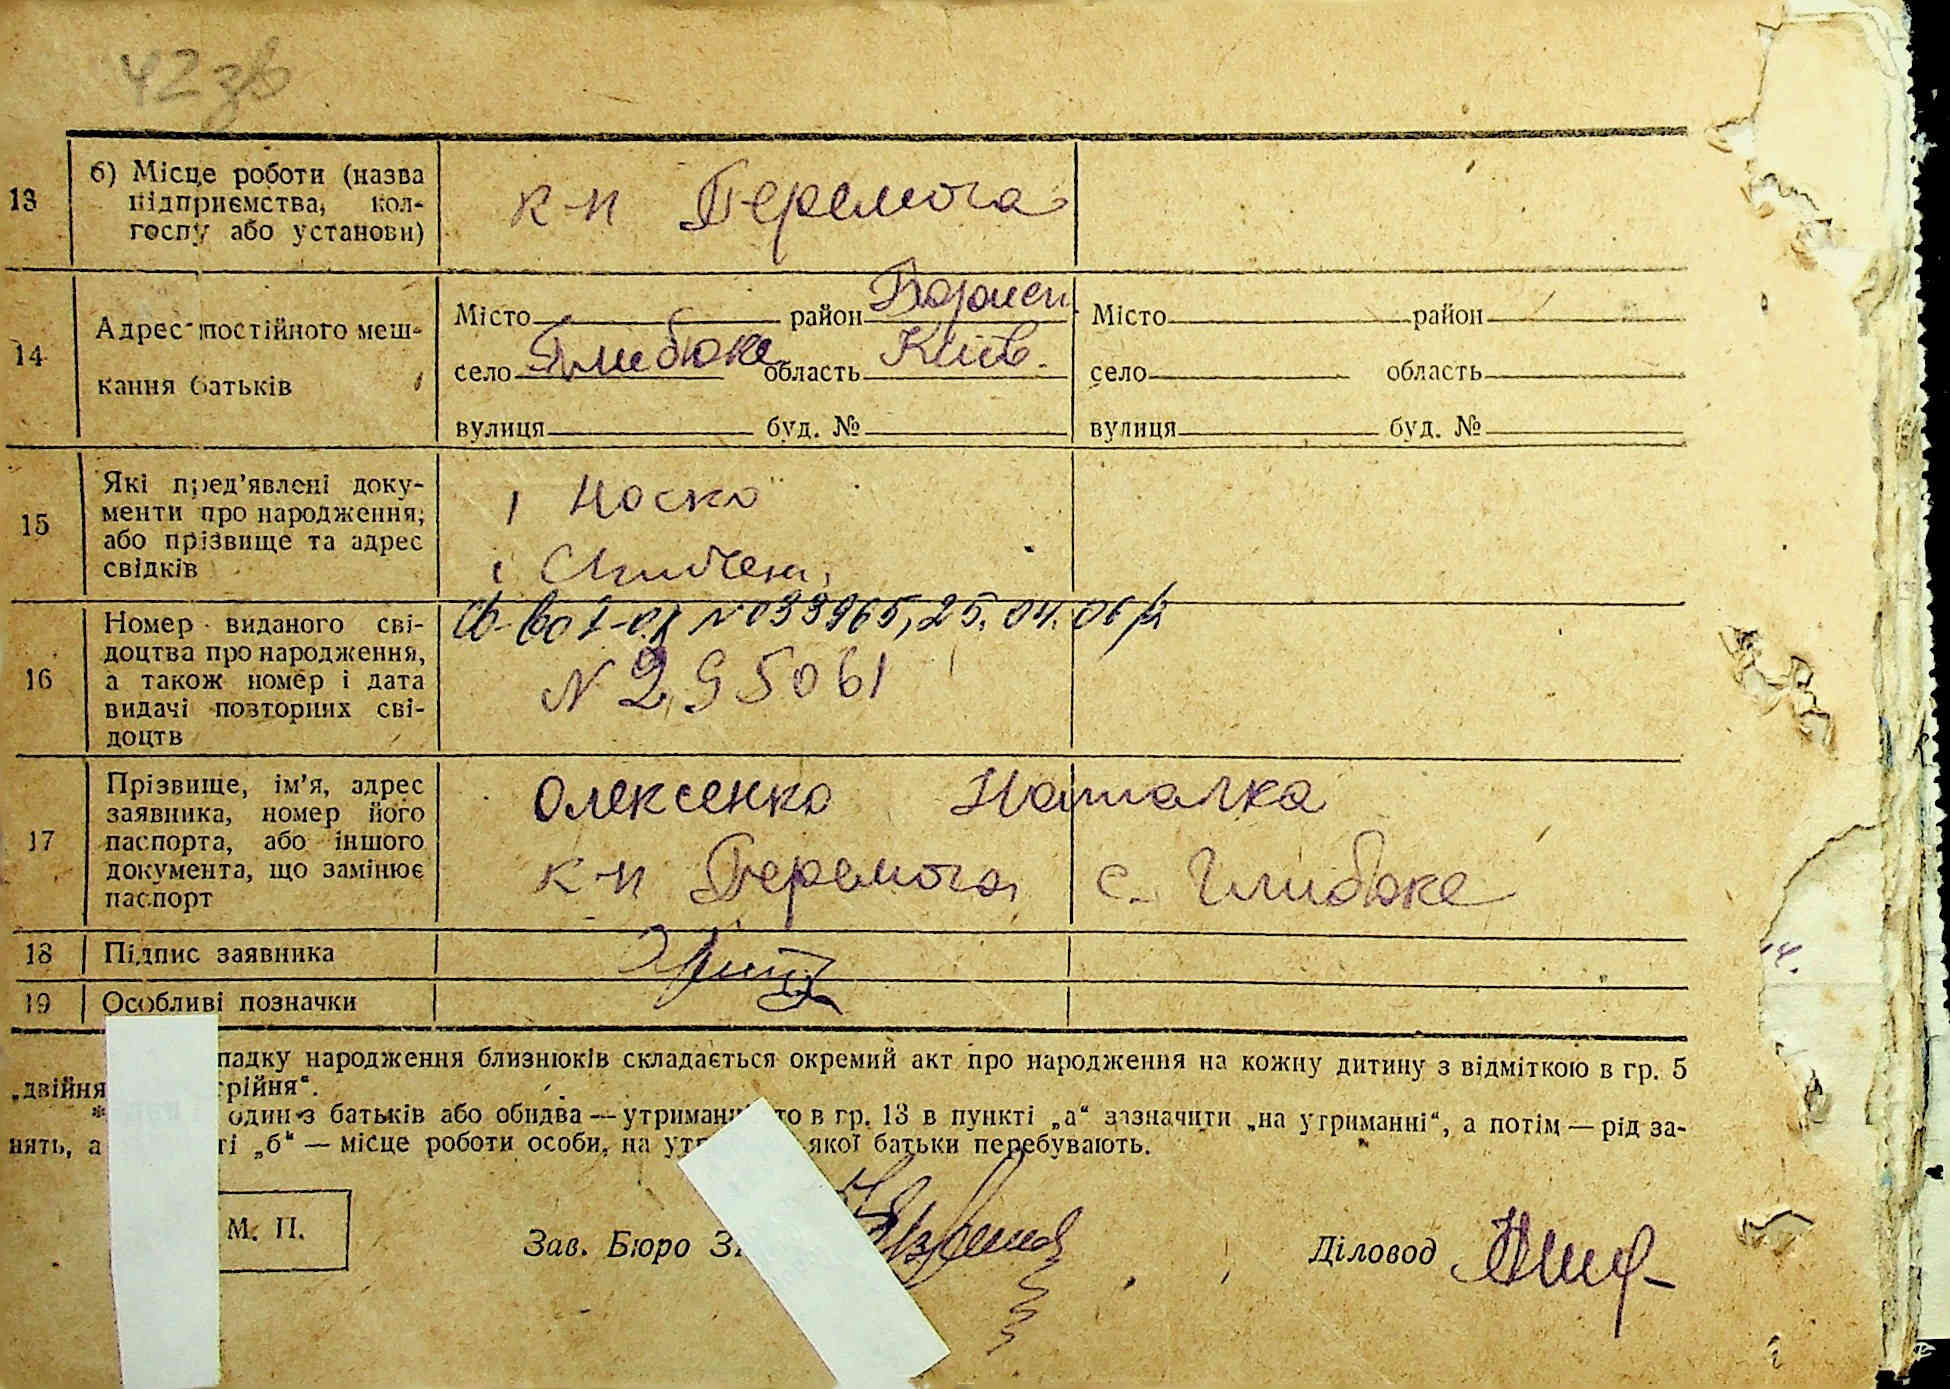 42 зв
13 б) Місце роботи (назва
підприємства, кол-
госпу або установи)
к-п Перемога
14 Адрес постійного меш-
кання батьків
Місто район Борисп.
село Глибоке область Київ.
вулиця буд. №
Місто район
село область
вулиця буд. №
15 Які пред'явлені доку-
менти про народження,
або прізвище та адрес
свідків
1 Носко
16 Номер виданого сві-
доцтва про народження,
а також номер і дата
видачі повторних сві-
доцтв
№ 033965, 25.04.06 р
N 295061
17 Прізвище, ім'я, адрес
заявника, номер його
паспорта, або іншого
документа, що замінює
паспорт
Олексенко Наталка
к-п Перемога, с. Глибоке
18 Підпис заявника
19 Особливі позначки
падку народження близнюків складається окремий акт про народження на кожну дитину з відміткою в гр. 5
„двійня рійня“.
* один з батьків або обидва — утриманці то в гр. 13 в пункті „а“ зазначити „на утриманні“, а потім — рід за-
нять, а ті „б“ — місце роботи особи, на утр якої батьки перебувають.
М. П.
Зав. Бюро З
Діловод